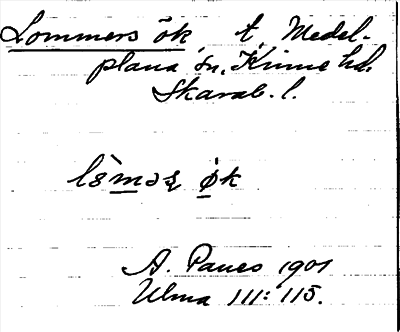 Lommers ök t. Medel-
plana sn, Kinne hd.
Skarab. l.
A. Palles 1901
Ulma 111:115.